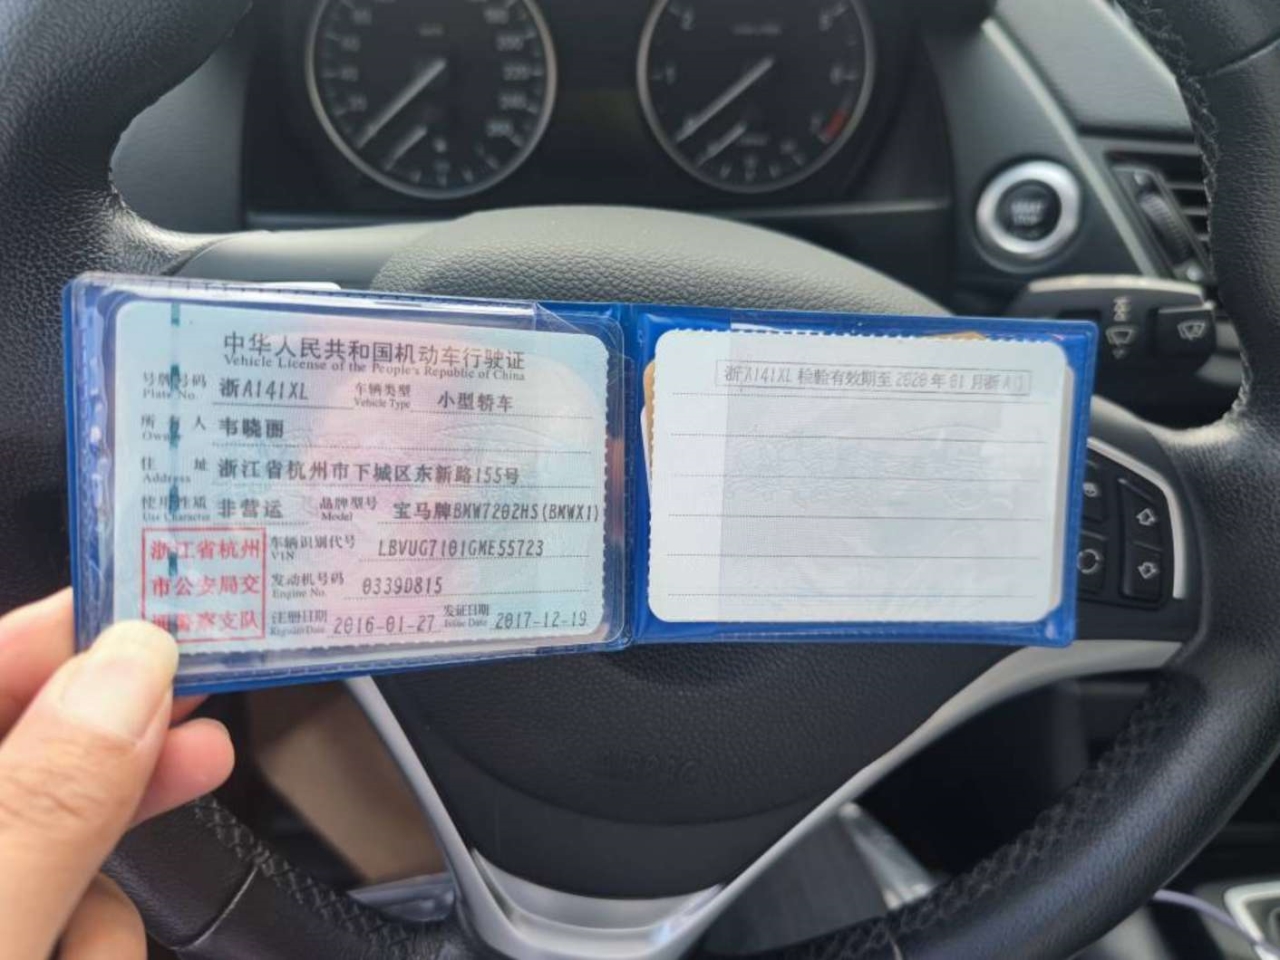 中华人民共和国机动车行驶证
Vehicle License of the People's Republic of China
号牌号码 Plate No. 浙A141XL 车辆类型 Vehicle Type 小型轿车
所有人 Owner 韦晓丽
住址 Address 浙江省杭州市下城区东新路155号
使用性质 Use Character 非营运 品牌型号 Model 宝马牌BMW7202HS(BMWX1)
浙江省杭州
市公安局交
通警察支队
车辆识别代号 VIN LBVUG7101GME55723
发动机号码 Engine No. 0339D815
注册日期 Register Date 2016-01-27 发证日期 Issue Date 2017-12-19
浙A141XL 检验有效期至 2020年01月浙A